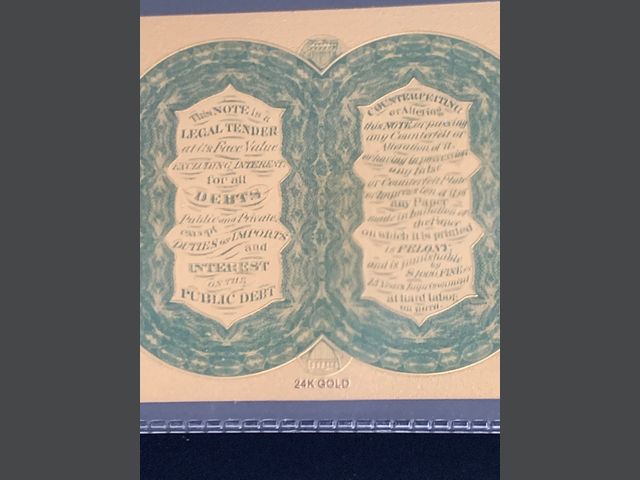 This NOTE is a
LEGAL TENDER
at its Face Value
EXCLUDING INTEREST
for all
DEBTS
Public and Private,
except
DUTIES on IMPORTS
and
INTEREST
ON THE
PUBLIC DEBT
COUNTERFEITING
or Altering
this NOTE or passing
any Counterfeit or
Alteration of it,
or having in possession
any false
or Counterfeit Plate
or Impression of it, or
any Paper
made in Imitation of
the Paper
on which it is printed
is FELONY,
and is punishable
by
$5,000 FINE or
15 Years Imprisonment
at hard labor,
or both.
24K GOLD